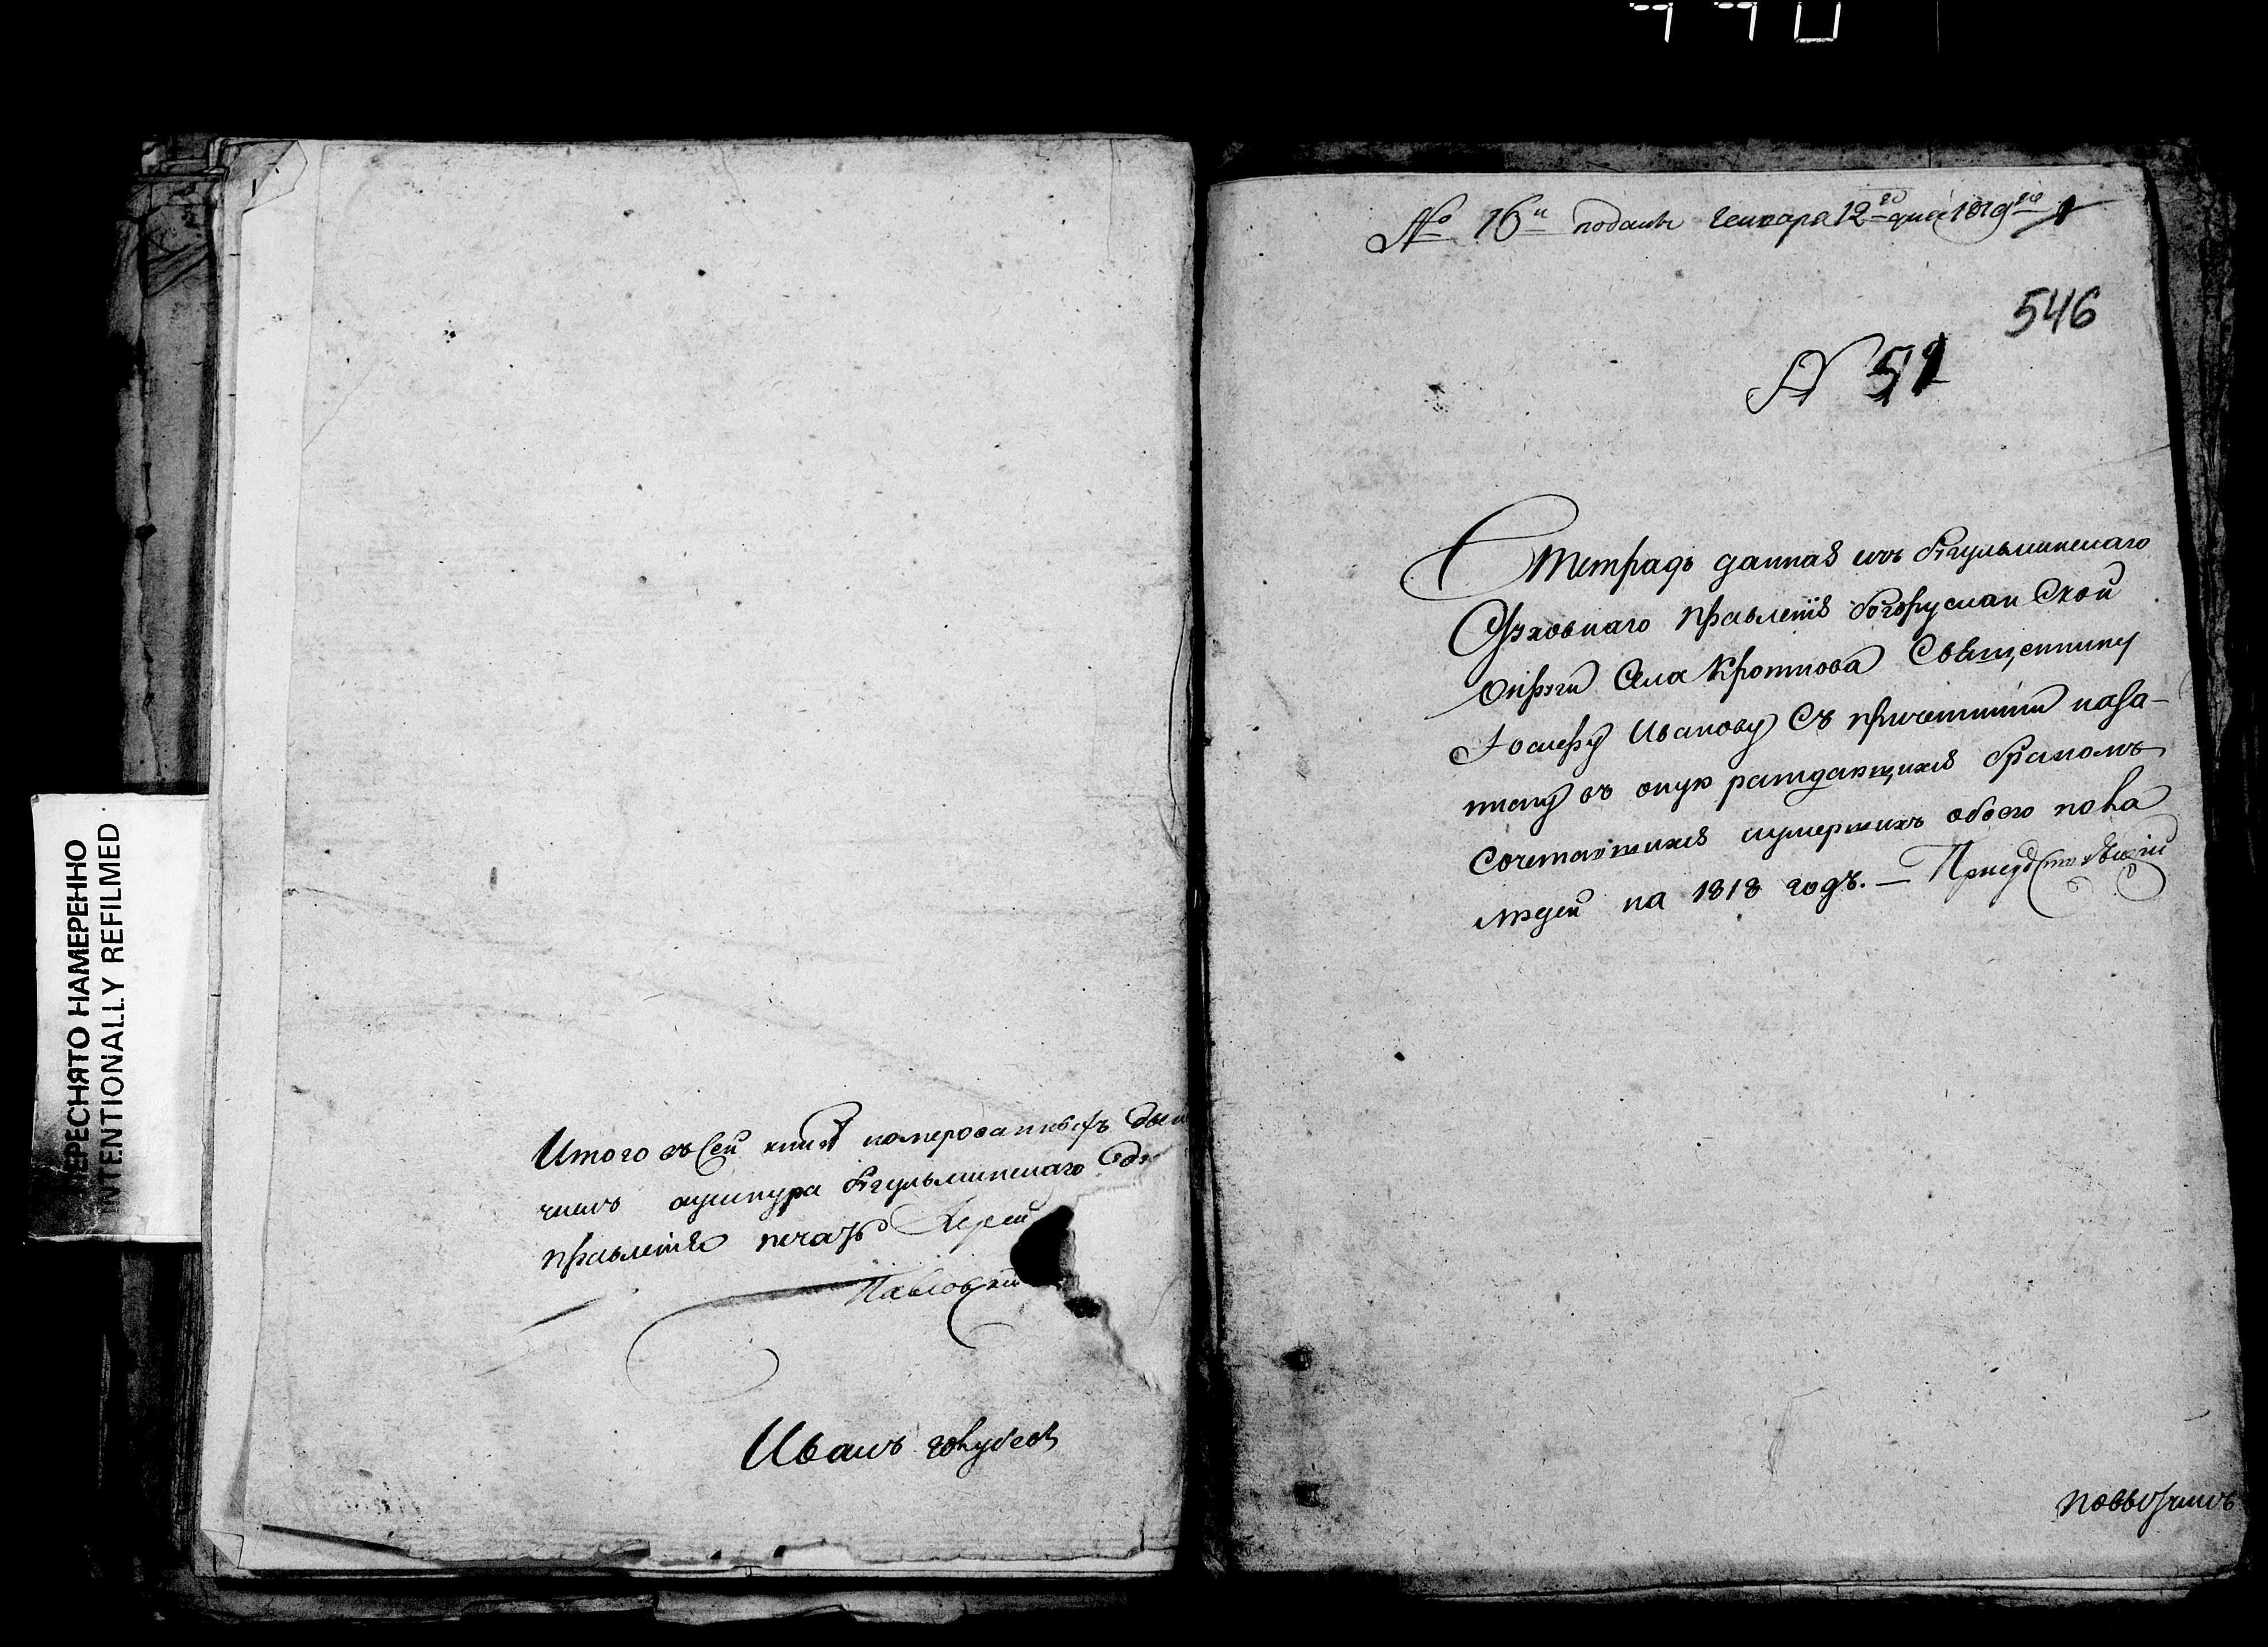 ПЕРЕСНЯТО НАМЕРЕННО
INTENTIONALLY REFILMED
Итого въ сей книге номерованныхъ
числъ Бугульминскаго
правленія печать
Павловский
Иванъ голубевъ
№ 16й поданъ Генваря 12го дня 1819го
546
N 51
Тетрадь данная изъ Бугульминскаго
Духовнаго правленія Богорусланской
округи Села Кроткова Священнику
Іосифу Иванову Съ причетники на за-
писку въ оную раждающихся бракомъ
Сочетавшихся иумершихъ обоего пола
людей на 1818 годъ. — Присудствующій